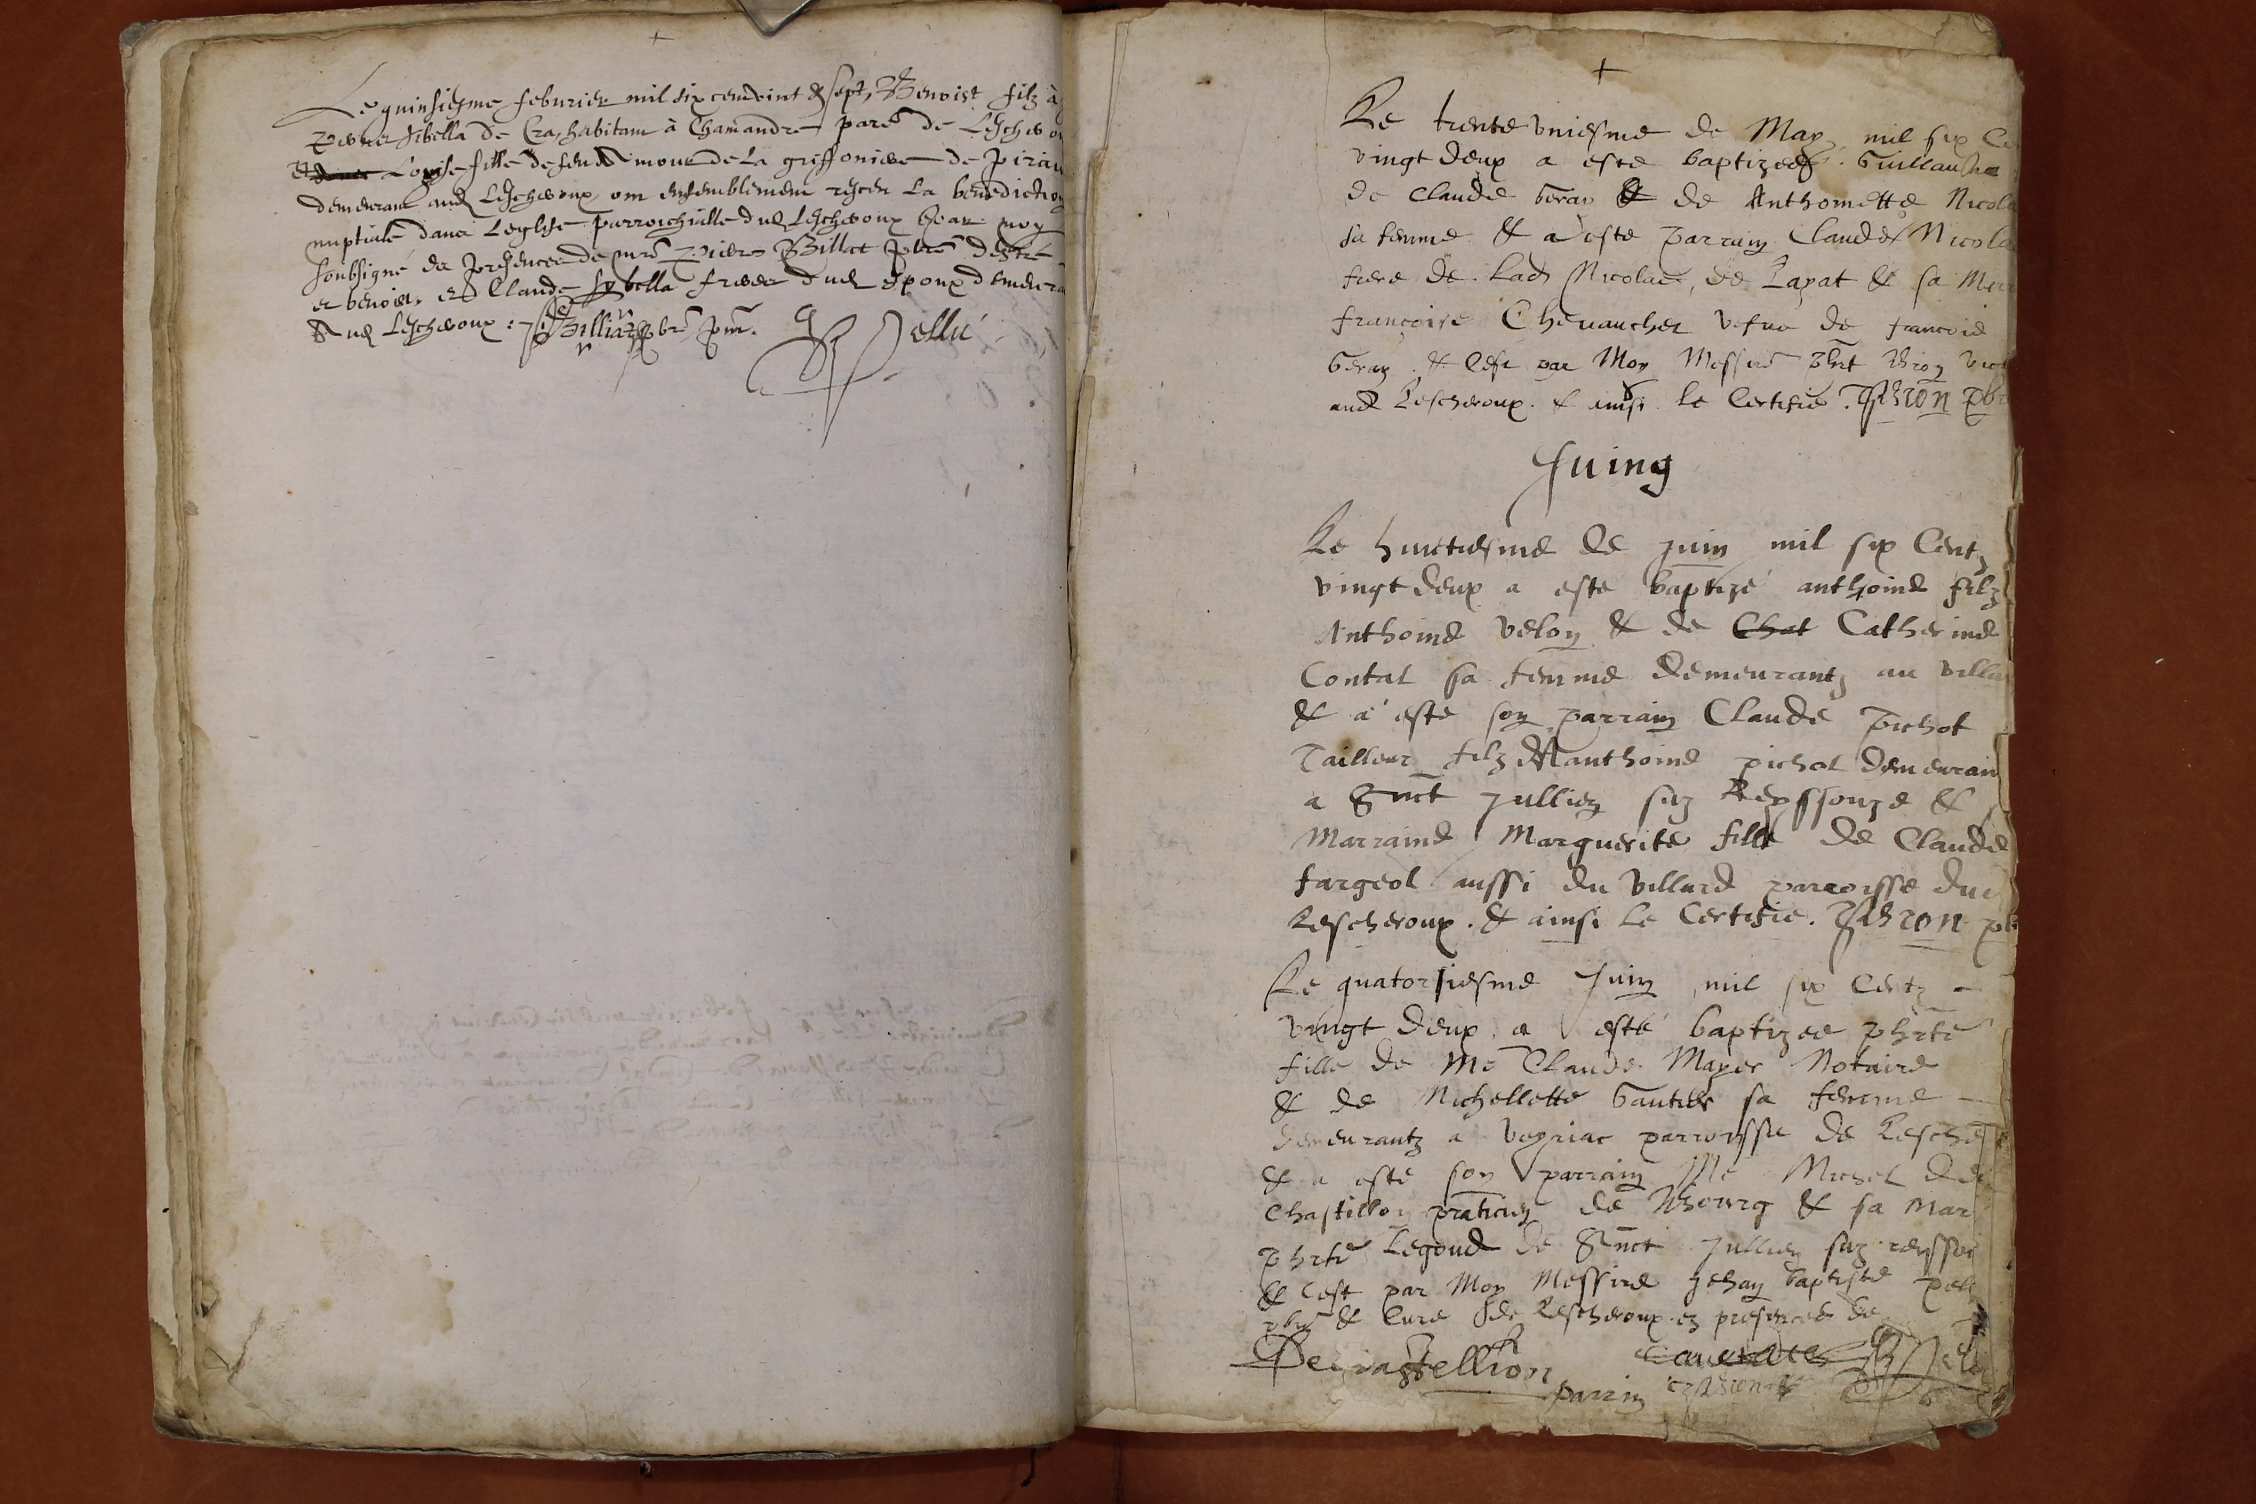 Le quinsiesme feburier mil six cent vint & sept, Benoist filz à
Pierre Sibella de Cras, habitant à Chamandre par~e de Lescheroux
Et Louyse fille de feu Aimour de la griffoniere de Piriau
demeurant aud Lescheroux, ont ensemblement receu la benediction
nuptiale dans Leglise parroichialle dud Lescheroux par moy
soubsigné en presence de mre Piere Billet pbre
et benoist, et Claude Sybella frere dud espoux demeurant
Aud Lescheroux : Billiat pbre pnt. Pellu
+
Le trente uniesme de May mil six Ce
vingt deux a este baptizee Guillauma
de Claude beray & de Anthoinette Nicola
sa femme & a este parrain Claude Nicola
frere de lad Nicolac, de Layat & sa Mar
françoise Chevaucher vefue de francois
beray & cest par Moy Messire Bron vic
aud Lescheroux. & ainsi le Certifie. Bron pbr
Juing
Le huictiesme de juin mil six Centz
vingt deux a este baptizé anthoine filz
Anthoine velon & de Chat Catherine
Contat sa femme demeurantz au villa
& a este son parrain Claude pichot
Tailleur filz danthoine pichot demeurant
a Sainct Jullien sur Reyssouze & s
Marraine Marguerite fille de Claude
fargeot aussi du villard parroisse dud
Lescheroux. & ainsi le Certifie. Bron pb
Le quatorsiesme Juin mil six Centz
vingt deux a esté baptizee phrte
fille de Me Claude Mayer Notaire
& de Michellette Gautier sa femme
demeurantz a veyriac parroisse de Lesche
& a este son parrain Me Michel de
Chastillon praticien de Bourg & sa Mar
phrte Legoud de Sainct Jullien sur reyssou
& cest par Moy Messire Jehan baptiste pell
pbre & Cure de Lescheroux en presence de
Dechastellion
parrin